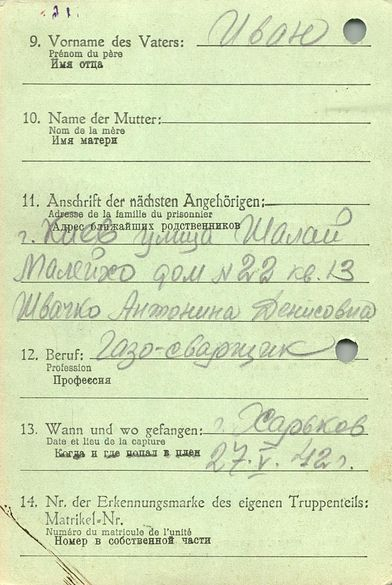 21.
9. Vorname des Vaters: Иван
Prénom du père
Имя отца
10. Name der Mutter:
Nom de la mère
Имя матери
11. Anschrift der nächsten Angehörigen:
Adresse de la famille du prisonnier
Адрес ближайших родственников
г. Киев улица Шалай
Малейхо дом N 22 кв. 13
Швачко Антонина Денисовна
12. Beruf: Газо-сварщик
Profession
Профессия
13. Wann und wo gefangen: г. Харьков
Date et lieu de la capture
Когда и где попал в плен 27. V. 42 г.
14. Nr. der Erkennungsmarke des eigenen Truppenteils:
Matrikel-Nr.
Numéro du matricule de l'unité
Номер в собственной части